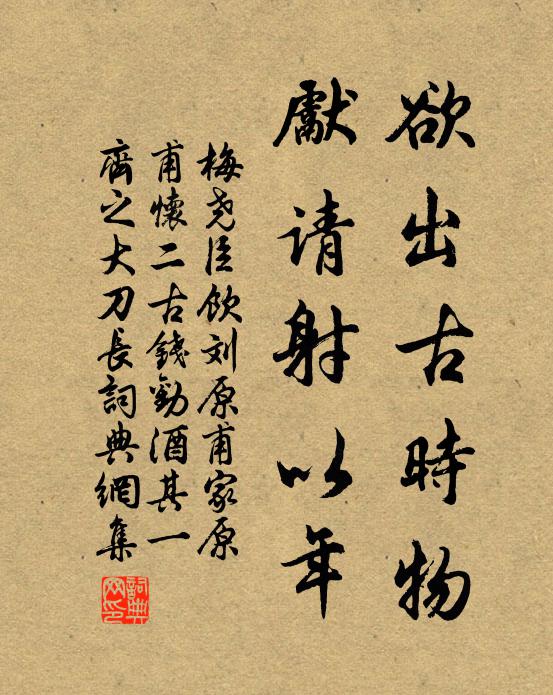 欲出古時物
獻请射以年
梅尧臣饮刘原甫家原
甫懷二古錢勸酒其一
齊之大刀長詞典網集
詞典网印